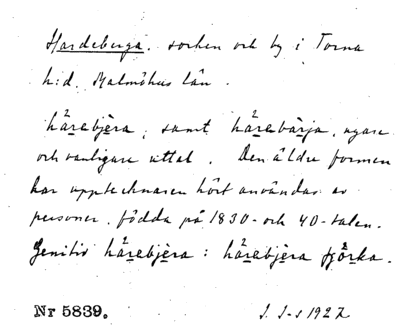 Hardeberga. socken och by i Torna
h:d. Malmöhus län.
hårebjèra, samt hårebàrja, nyare
och vanligare uttal. Den äldre formen
har upptecknaren hört användas av
personer, födda på 1830- och 40-talen.
Genitiv hårebjèra: hårebjèra tjôrka.
Nr 5839. 1927